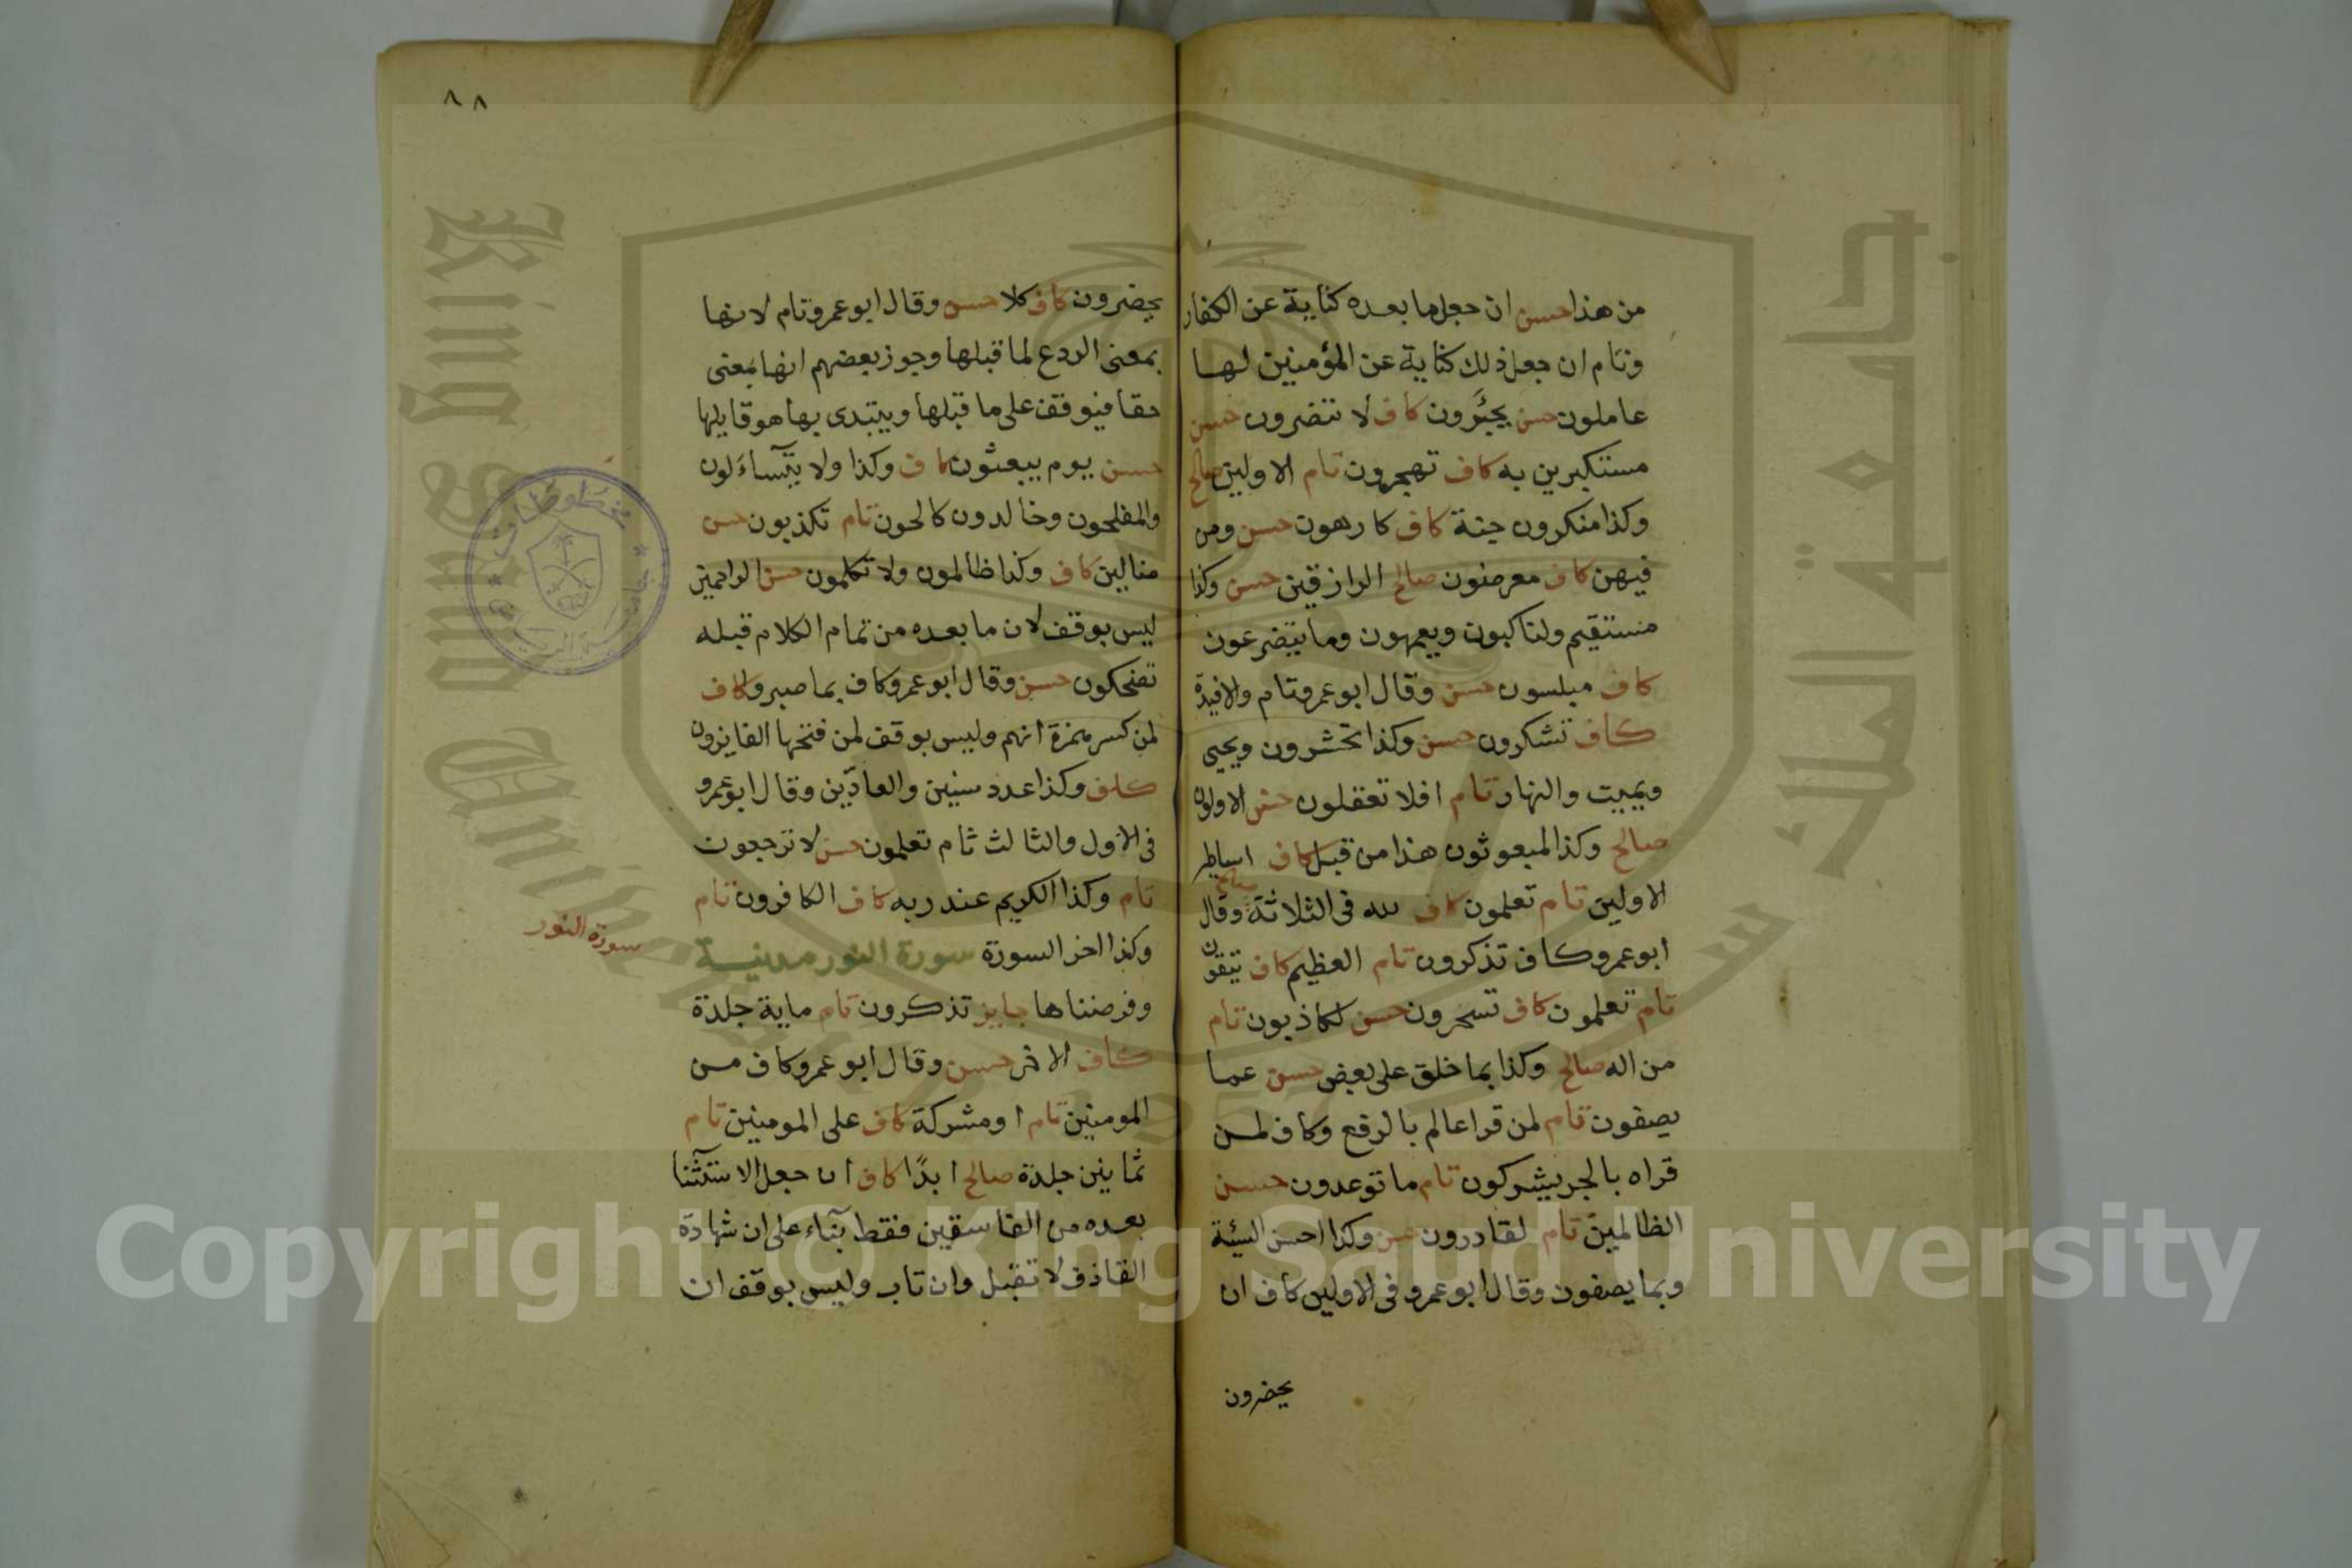 من هذا حسن ان جعل ما بعده كناية عن الكفار
وتام ان جعل ذلك كناية عن المؤمنين لهـا
عاملون حسن يجئرون كاف لا تنصرون حسن
مستكبرين به كاف تهجرون تام الاولين صالح
وكذا منكرون جنة كاف كارهون حسن ومن
فيهن كاف معرضون صالح الرازقين حسن وكذا
مستقيم ولناكبون ويعمهون وما يتضرعون
كاف مبلسون حسن وقال ابو عمرو تام والافيدة
كاف تشكرون حسن وكذا تحشرون ويحيى
ويميت والنهار تام افلا تعقلون حسن الاولون
صالح وكذا لمبعوثون هذا من قبل كاف اساطير
الاولين تام تعلمون كاف لله فى الثلاثة صالح وقال
ابو عمرو كاف تذكرون تام العظيم كاف تتقون
تام تعلمون كاف تسحرون حسن لكاذبون تام
من اله صالح وكذا بما خلق على بعض حسن عما
يصفون تام لمن قرا عالم بالرفع وكاف لمن
قراه بالجر يشركون تام ما توعدون حسن
الظالمين تام لقادرون حسن وكذا احسن السيئة
وبما يصفون وقال ابو عمرو فى الاولين كاف ان
يحضرون
٨٨
يحضرون كاف كلا حسن وقال ابو عمرو تام لانها
بمعنى الردع لما قبلها وجوز بعضهم انها بمعنى
حقا فيوقف على ما قبلها ويبتدى بها هو قايلها
حسن يوم يبعثون كاف وكذا ولا يتساءلون
والمفلحون وخالدون كالحون تام تكذبون حسن
ضالين كاف وكذا ظالمون ولا تكلمون حسن الراحمين
ليس بوقف لان ما بعده من تمام الكلام قبله
تضحكون حسن وقال ابو عمرو كاف بما صبروا كاف
لمن كسر همزة انهم وليس بوقف لمن فتحها الفايزون
كاف وكذا عدد سنين والعادّين وقال ابو عمرو
فى الاول والثالث تام تعلمون حسن لا ترجعون
تام وكذا الكريم عند ربه كاف الكافرون تام
وكذا اخر السورة سورة النور مدنيـة
سورة النور
وفرضناها جايز تذكرون تام ماية جلدة
كاف الاخر حسن وقال ابو عمرو كاف من
المومنين تام او مشركة كاف على المومنين تام
ثمانين جلدة صالح ابدًا كاف ان جعل الاستثنا
بعده من الفاسقين فقط بناء على ان شهادة
القاذف لا تقبل وان تاب وليس بوقف ان
جامعة الملك سعود
King Saud University
1957
Copyright © King Saud University